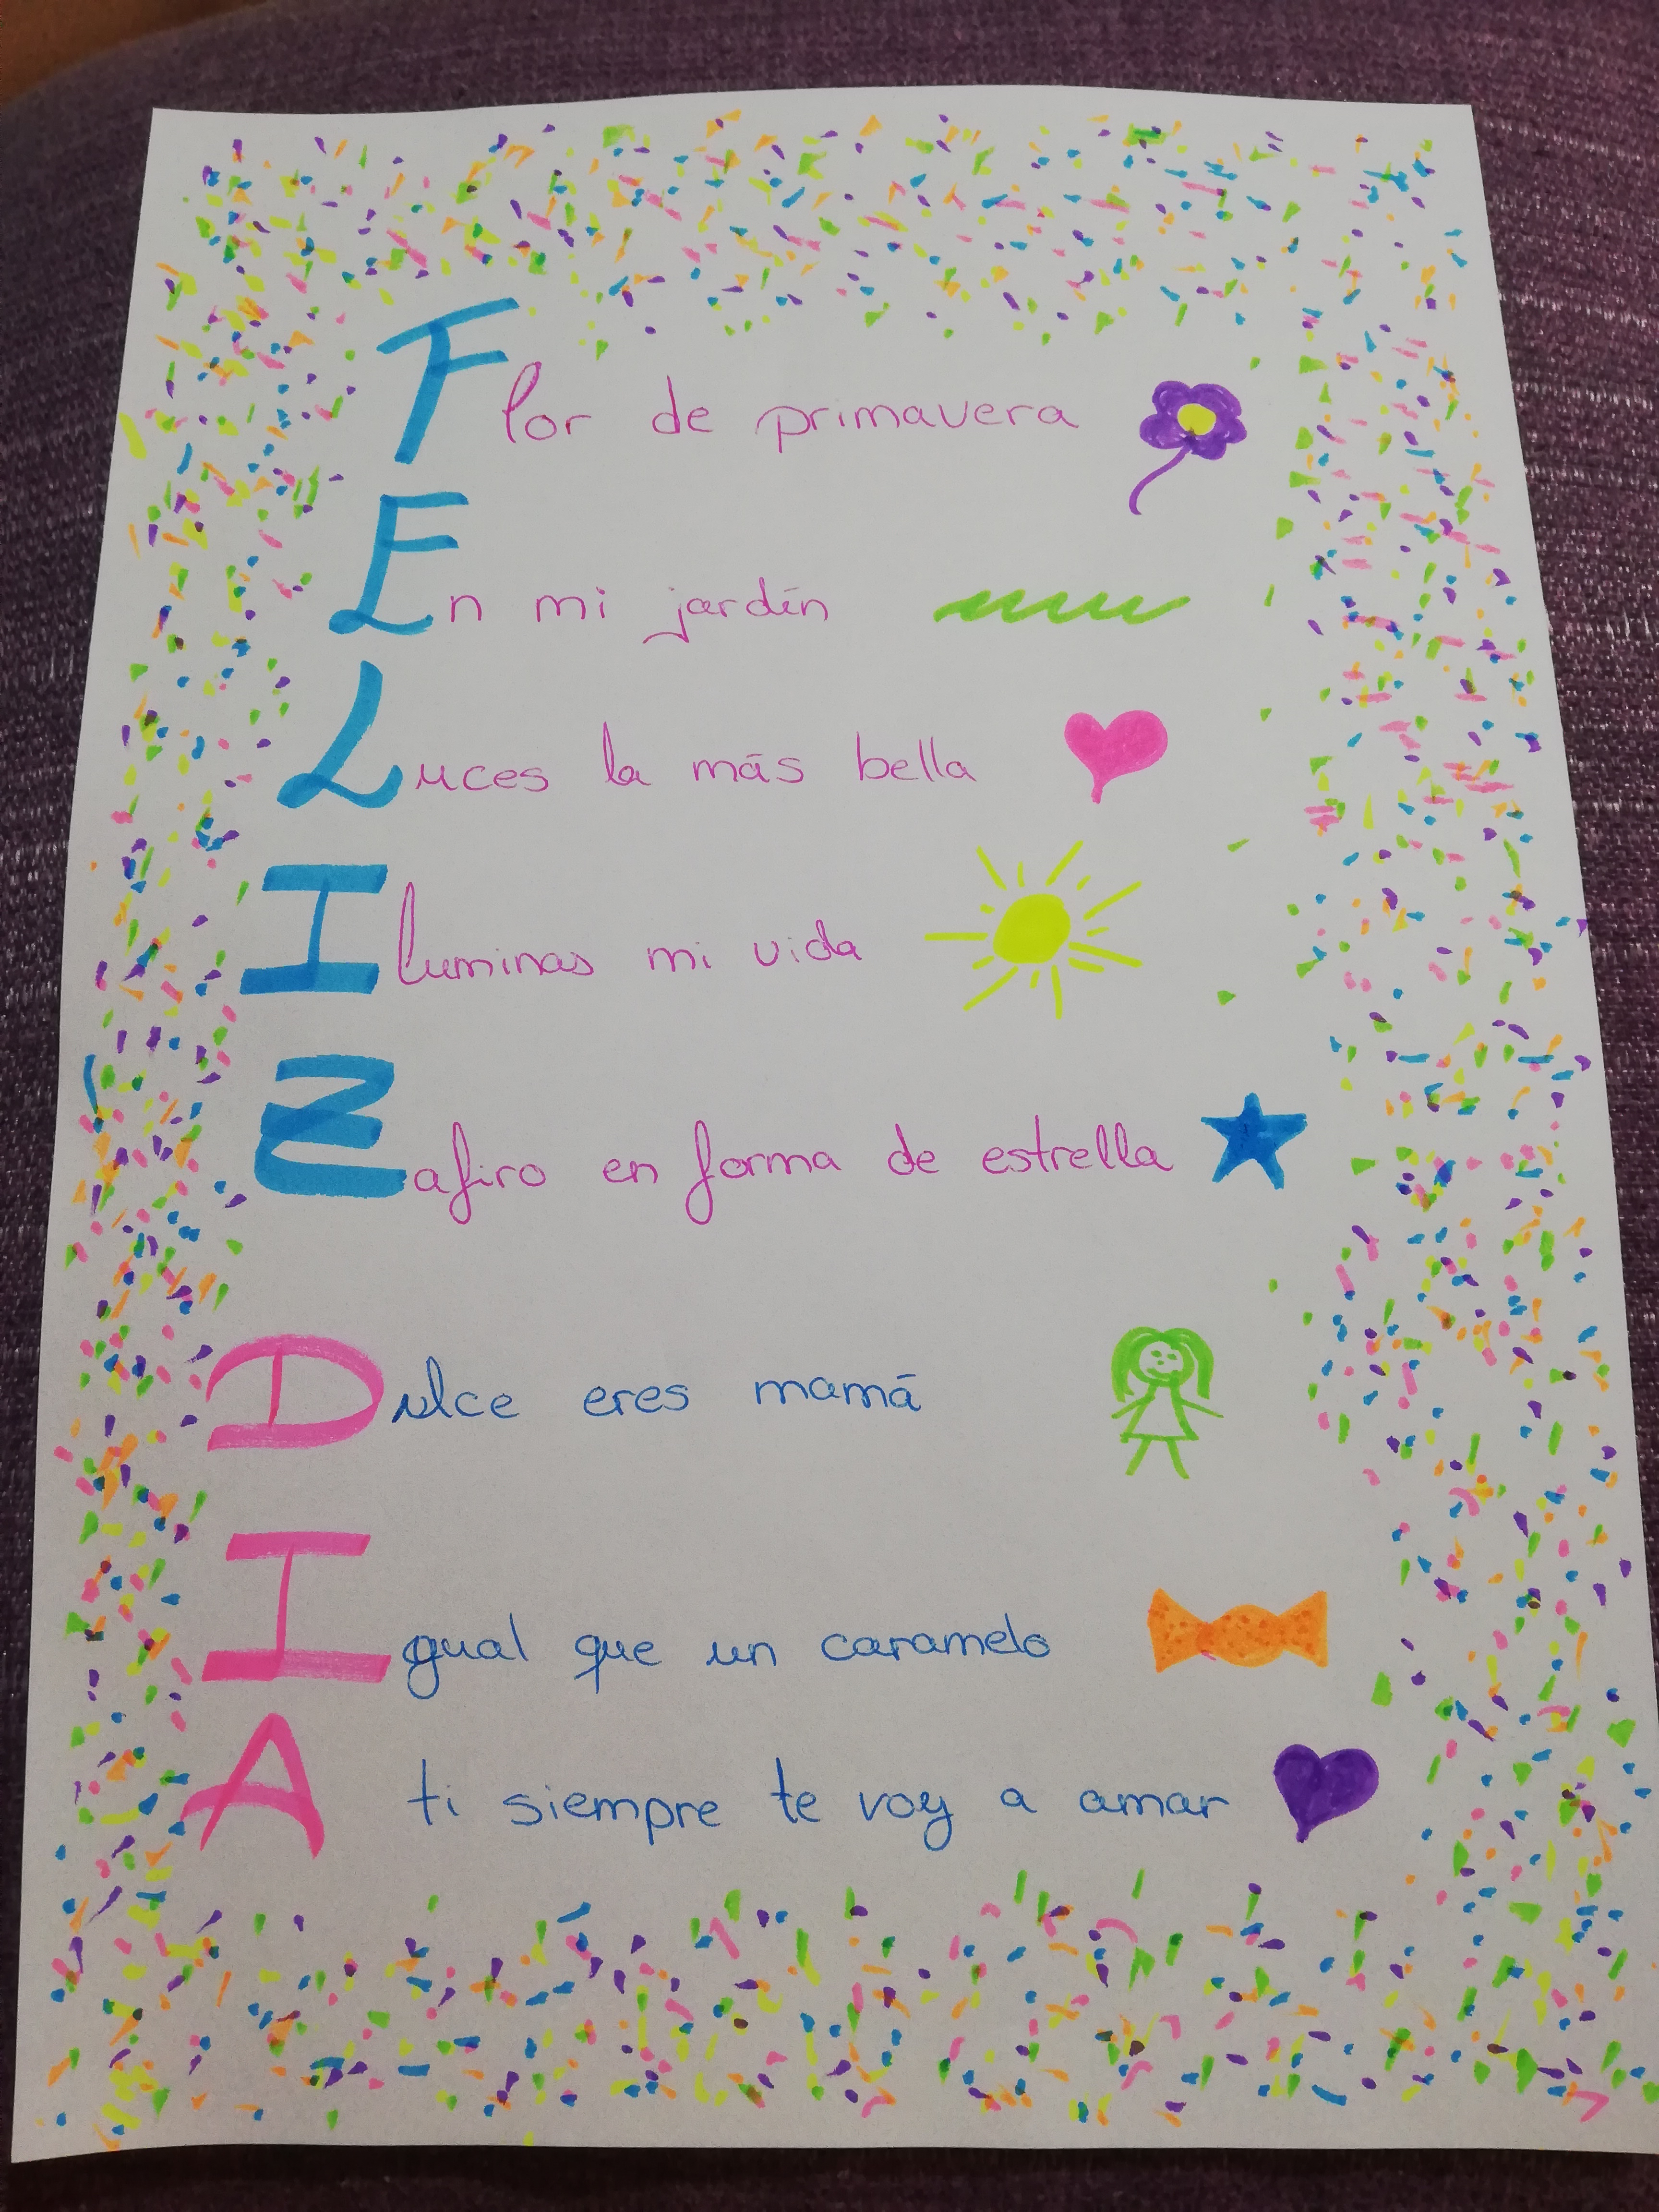 Flor de primavera
En mi jardín
Luces la más bella
Iluminas mi vida
Zafiro en forma de estrella
Dulce eres mamá
Igual que un caramelo
A ti siempre te voy a amar